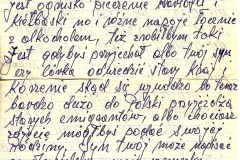 jest ognisko pieczenie kiełbasy i
kiełbaski no i różne napoje łącznie
z alkoholem, Też zrobiłbym taki
jest gdybyś przyjechał albo twój syn
czy córka odwiedzić stary kraj,
korzenie skąd się wywodzą bo teraz
bardzo dużo do Polski przyjeżdża
starych emigrantów, albo chociaż
zdjęcie mógłbyś podać swojej
rodziny, Syn twój może napisać